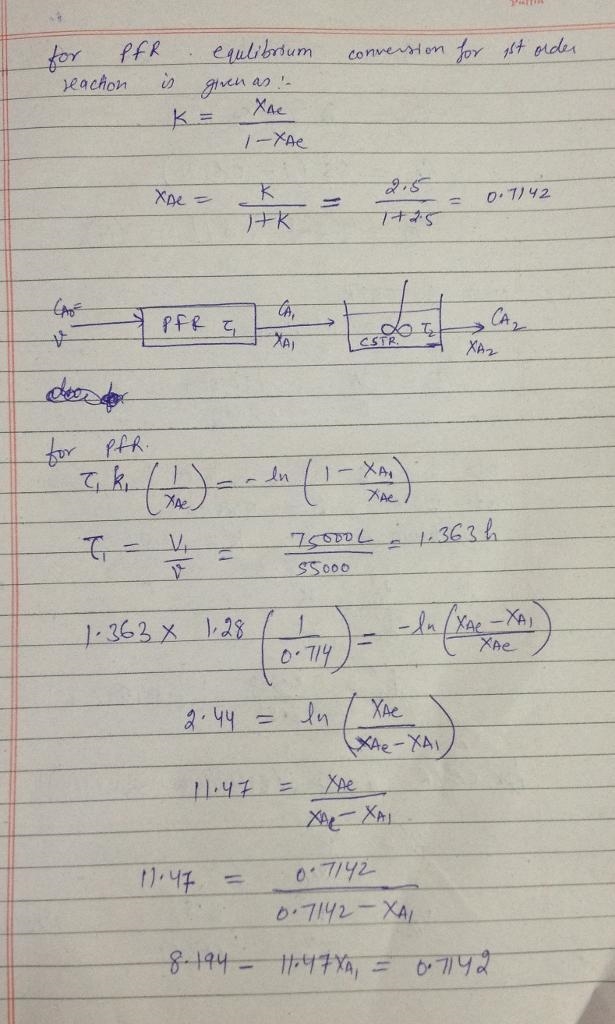 for PFR. equlibrium conversion for 1st order
reaction is given as :-
K = XAe / 1-XAe
XAe = K / 1+K = 2.5 / 1+2.5 = 0.7142
CA0= v → PFR τ1 → CA1 XA1 → CSTR. τ2 → CA2 XA2
for PFR.
τ1 k1 (1 / XAe) = - ln (1 - XA1 / XAe)
τ1 = V1 / v = 75000L / 55000 = 1.363 h
1.363 × 1.28 (1 / 0.714) = -ln (XAe - XA1 / XAe)
2.44 = ln (XAe / XAe - XA1)
11.47 = XAe / XAe - XA1
11.47 = 0.7142 / 0.7142 - XA1
8.194 - 11.47XA1 = 0.7142